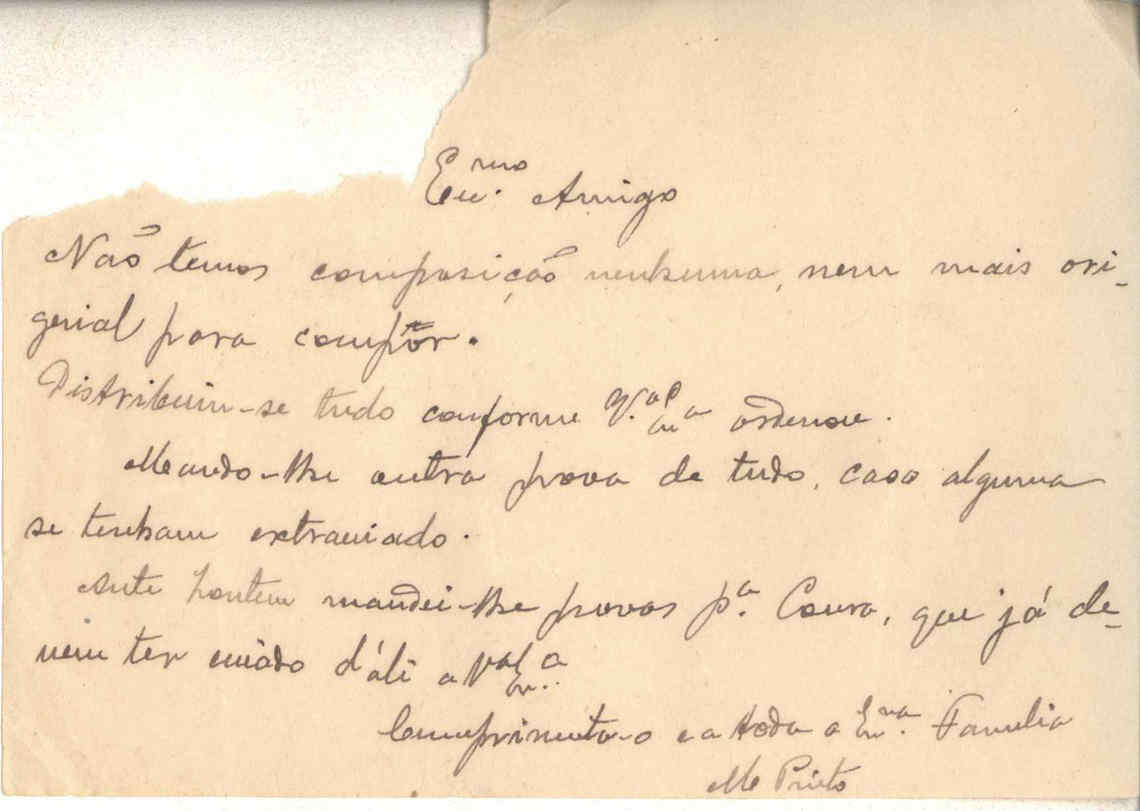 Exmo. Amigo
Não temos composição nenhuma, nem mais ori-
genial para compôr.
Distribuiu-se tudo conforme V.a Exa ordenou.
Mando-lhe outra prova de tudo, caso alguma
se tenham extraviado.
Ante hontem mandei-lhe provas pa. Coura, que já de-
vem ter enviado d'áli a Va Ex.a
Comprimenta-o e a toda a Exma. Familia
M Prieto